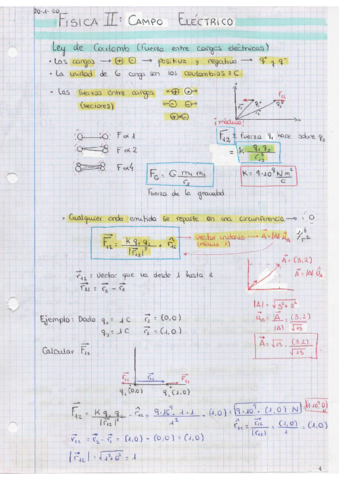 FÍSICA II: CAMPO ELÉCTRICO
Ley de Coulomb (fuerza entre cargas eléctricas)
• Las cargas → ⊕ ⊖ → positiva y negativa → q⁺ y q⁻
• La unidad de la carga son los coulombios ≡ C
• Las fuerzas entre cargas
(vectores)
F∝1
F∝2
F∝4
¡módulo!
F₁₂ = Fuerza q₁ hace sobre q₂
= K q₁ q₂ / r₁₂²
F_G = G m₁ m₂ / r₂
K = 9·10⁹ N m² / C
Fuerza de la gravedad
• Cualquier onda emitida se reparte en una circunferencia →
F₁₂ = K q₁ q₂ / |r₁₂|² · r̂₁₂
vector unitario
(módulo 1)
A = |A| û_A
r₁₂ = vector que va desde 1 hasta 2
r₁₂ = r₂ - r₁
A = (3,2)
|A| = √3²+2²
Ejemplo: Dado q₁ = 1 C r₁ = (0,0)
q₂ = 1 C r₂ = (1,0)
û_A = A / |A| = (3,2) / √13
A = √13 · (3,2) / √13
Calcular F₁₂
r₁₂ F₁₂
q₁ (0,0) q₂ (1,0)
F₁₂ = K q₁ q₂ / |r₁₂|² · r̂₁₂ = 9·10⁹ · 1·1 / 1² · (1,0) = 9·10⁹ · (1,0) N
r̂₁₂ = r₁₂ / |r₁₂| = (1,0) / 1 = (1,0)
r₁₂ = r₂ - r₁ = (1,0) - (0,0) = (1,0)
|r₁₂| = √1²+0² = 1
1